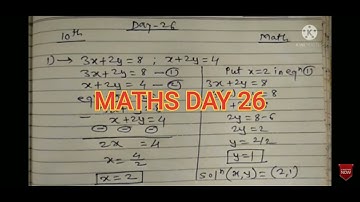 Day-26
10th Math
1) → 3x+2y=8 ; x+2y=4
3x+2y=8 —①
x+2y=4 —②
MATHS DAY 26
x+2y=4
− − −
2x =4
x=4/2
x=2
Put x=2 in eqn ①
3x+2y=8
2y=8-6
2y=2
y=2/2
y=1
soln (x,y)=(2,1)
SUBSCRIBE
NOW